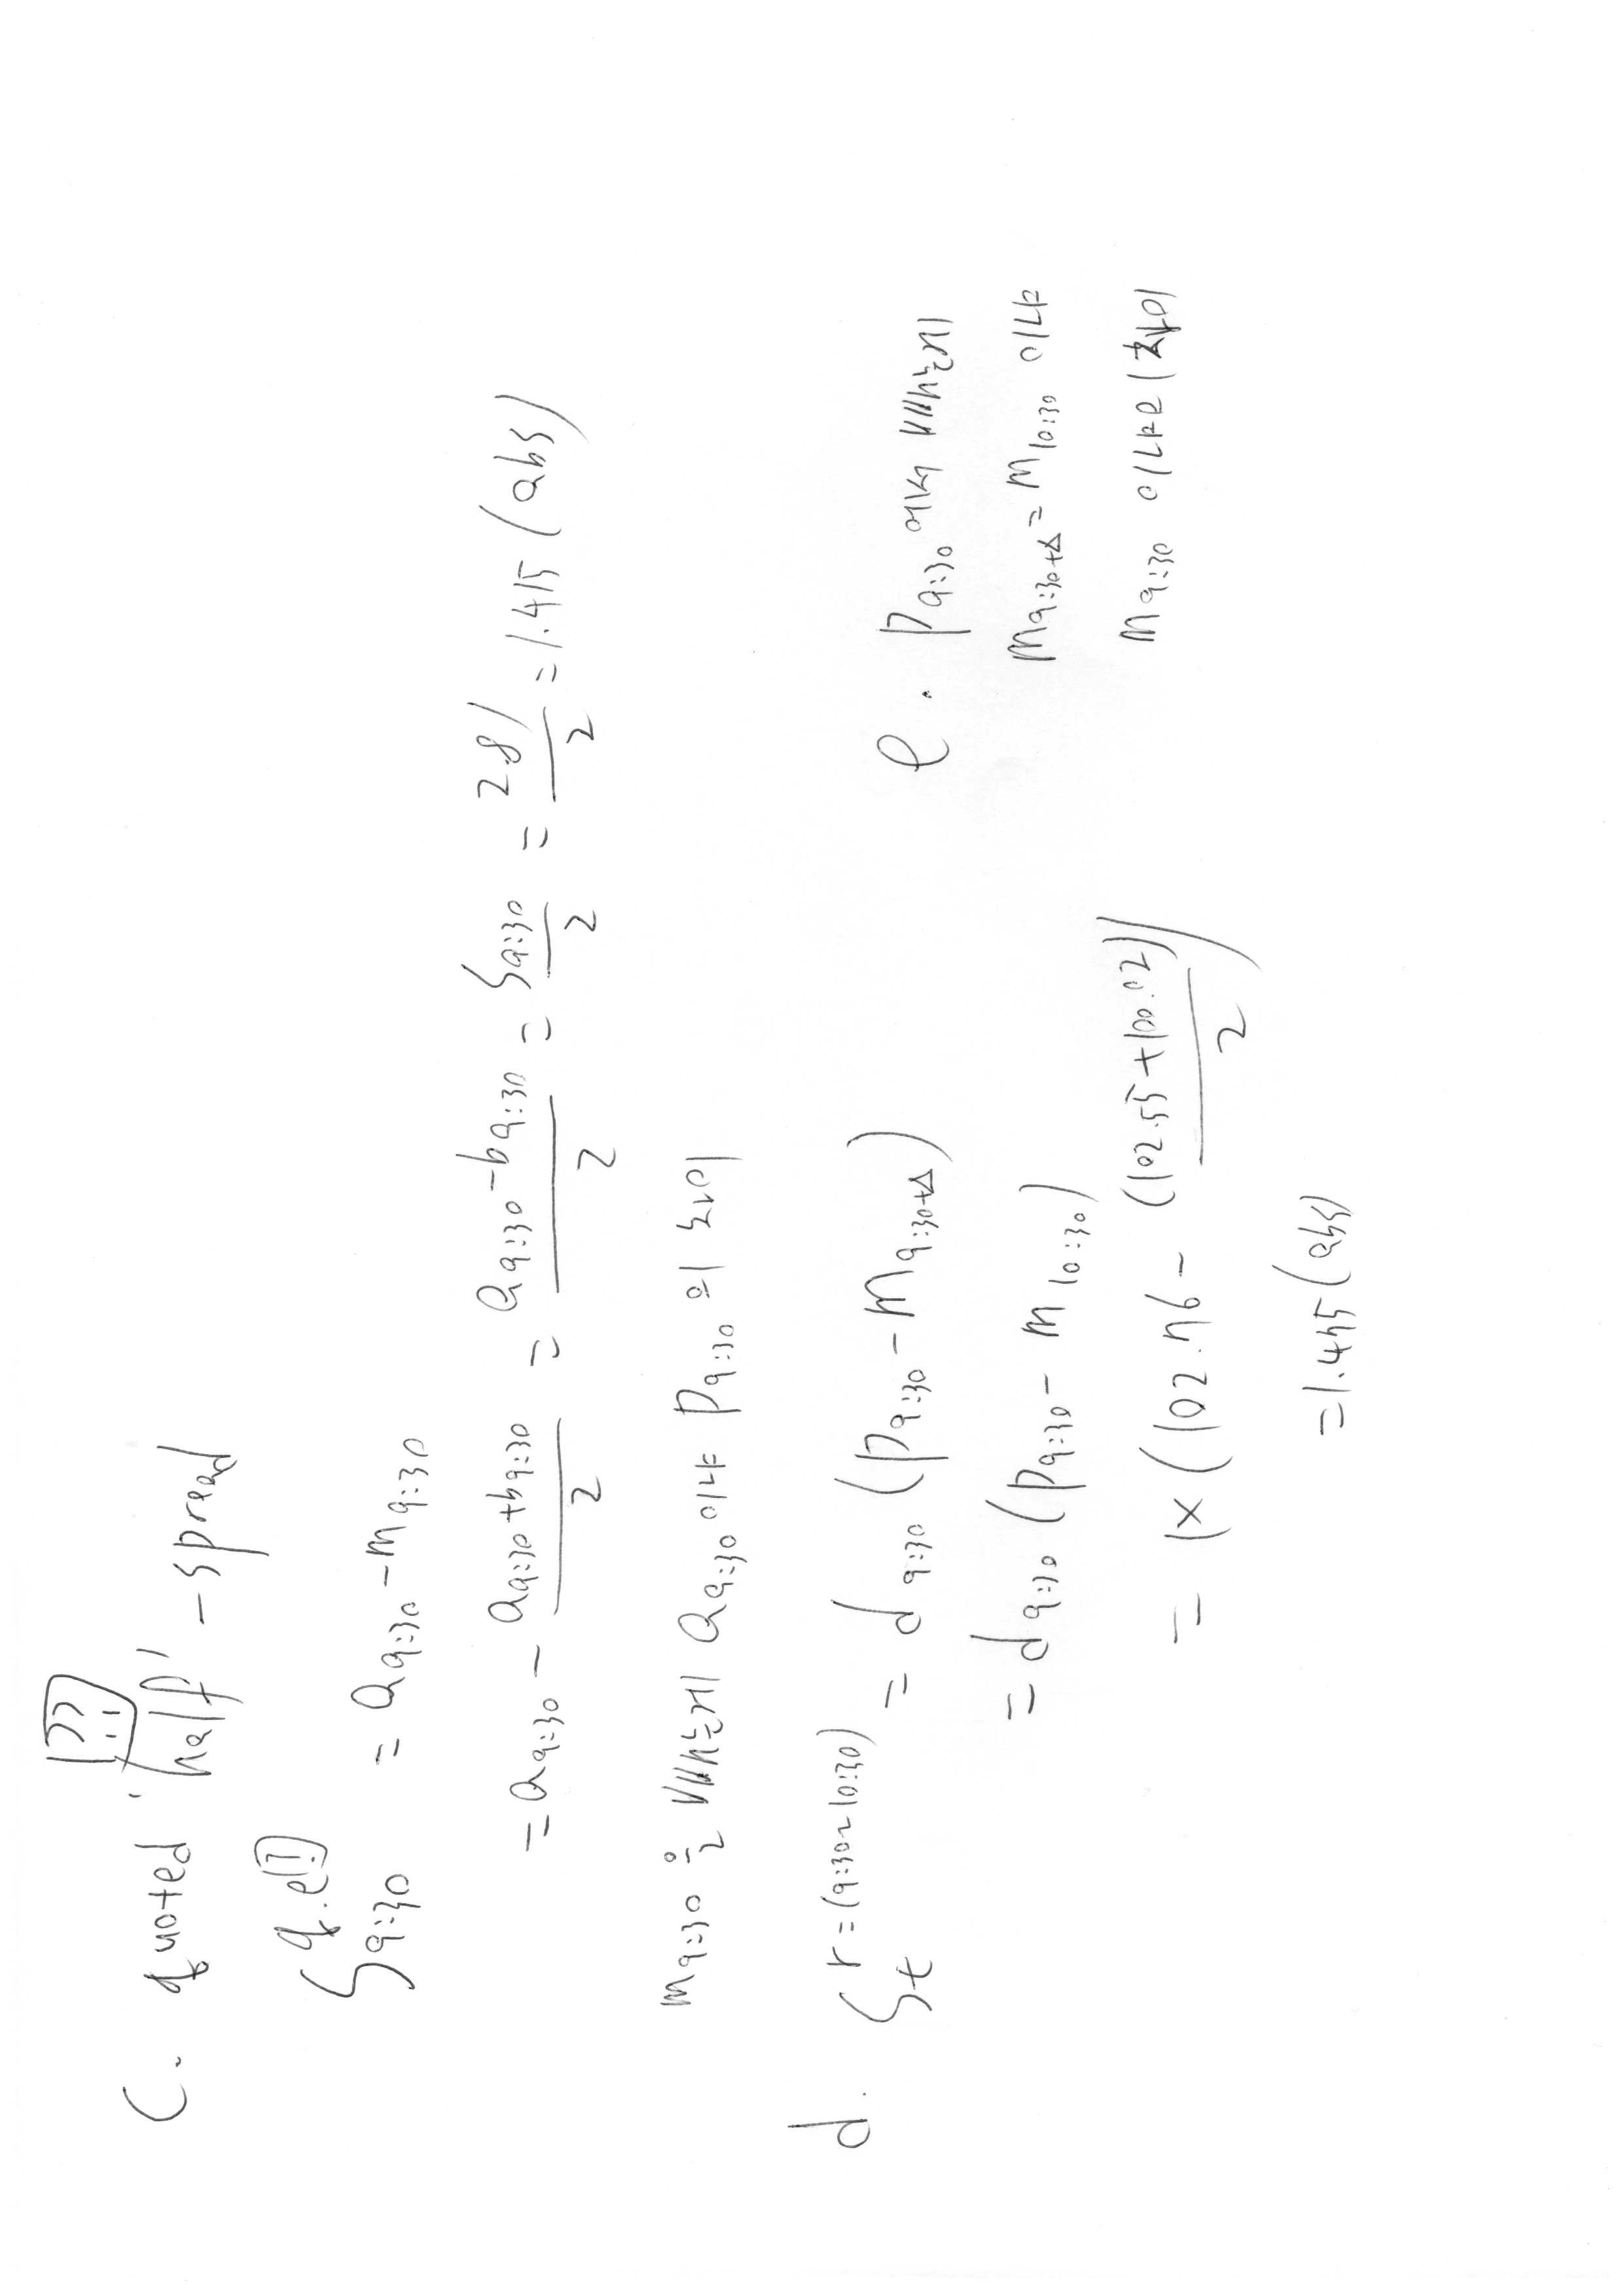 ??
c. quoted 'half' -spread
S_{9:30}^{q.e!} = a_{9:30} - m_{9:30}
= a_{9:30} - \frac{a_{9:30}+b_{9:30}}{2} = \frac{a_{9:30}-b_{9:30}}{2} = \frac{S_{9:30}}{2} = \frac{2.81}{2} = 1.415 (abs)
m_{9:30} 을 빼는게 a_{9:30} 이냐 p_{9:30} 의 차이
d. S_t^{r=(9:30~10:30)} = d_{9:30} (p_{9:30} - m_{9:30+Δ})
= d_{9:30} (p_{9:30} - m_{10:30})
= 1×(102.76 - \frac{(102.55+100.02)}{2})
= 1.475 (abs)
e. p_{9:30} 에서 빼는게
m_{9:30+Δ} = m_{10:30} 이냐
m_{9:30} 이냐의 차이